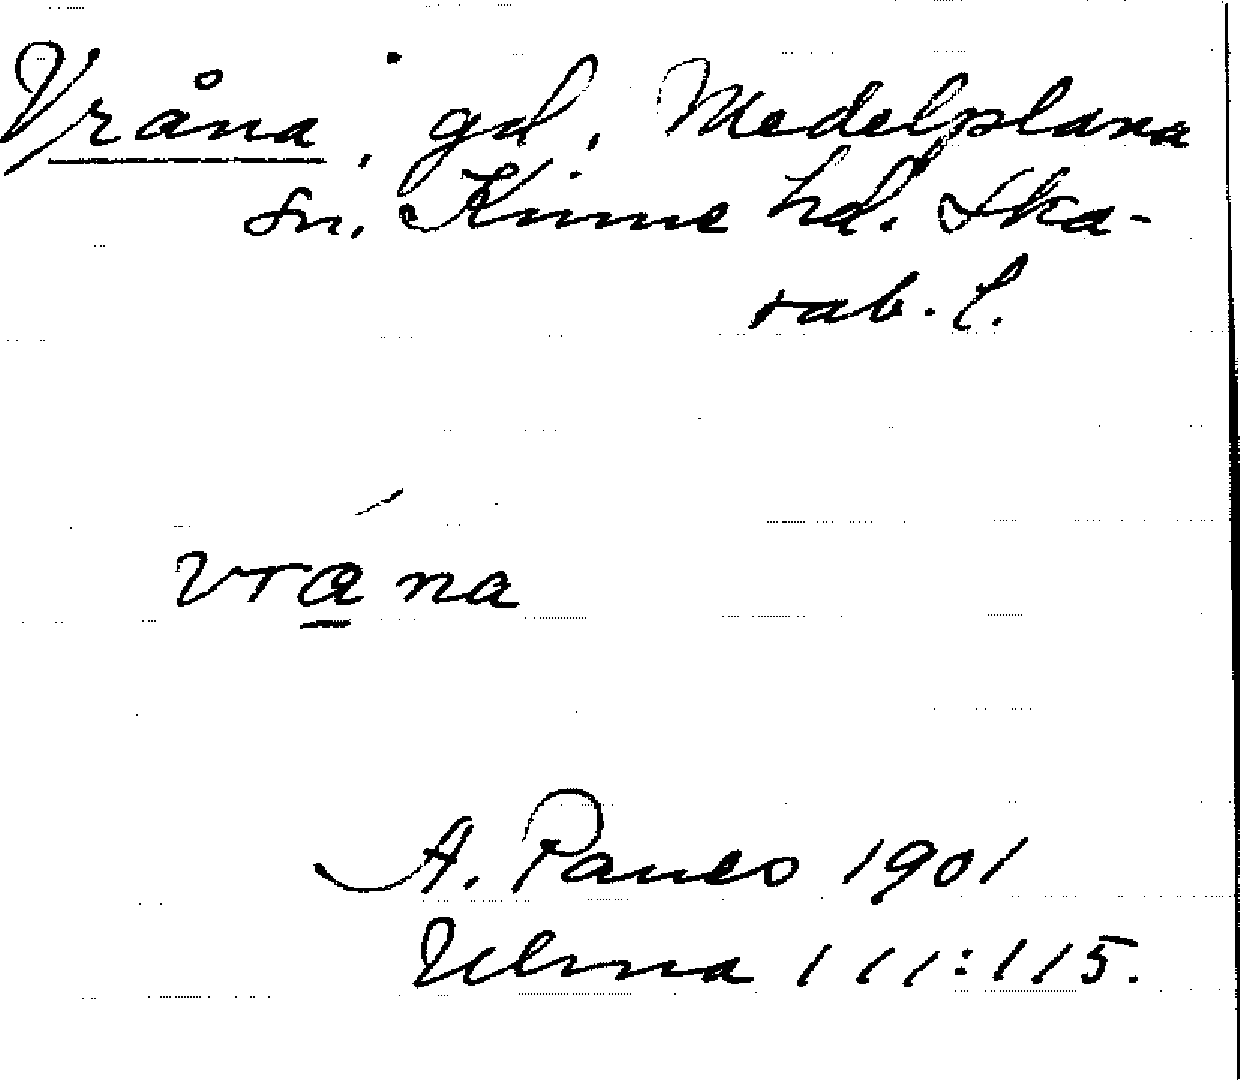 Vråna, gd, Medelplana
sn. Kinne hd. Ska-
rab. l.
vra̲ na
A. 1901
Ulma 111:115.